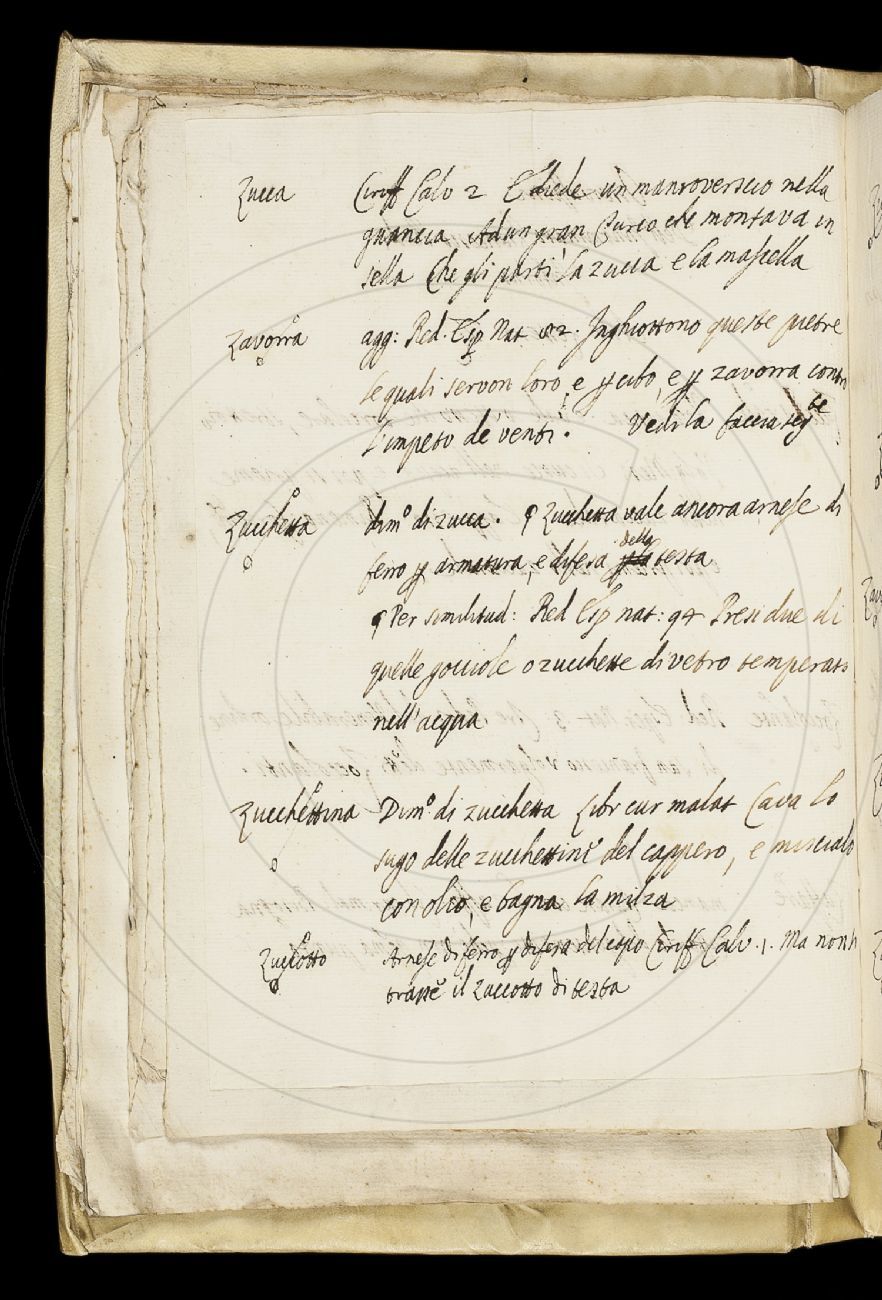 Zucca Ciriff Calv 2 E diede un manroverscio nella
guancia Ad un gran Turco che montava in
sella Che gli partì la zucca e la mascella
Zavorra agg: Red. Esp Nat 82. Inghiottono queste pietre
le quali servon loro, e p cibo, e p zavorra contr
l'impeto de' venti. Vedi la faccia segte
Zucchetta dimo di zucca. ¶ Zucchetta vale ancora arnese di
ferro p armatura, e difesa della testa
¶ Per similitud: Red Esp nat: 94 Presi due di
quelle gocciole o zucchette di vetro temperato
nell'acqua
Zucchettina Dimo di zucchetta Libr cur malat Cava lo
sugo delle zucchettine del cappero, e mischialo
con olio, e bagna la milza
Zuccotto Arnese di ferro p difesa del capo Ciriff Calv. 1. Ma non li
trasse il Zuccotto di testa